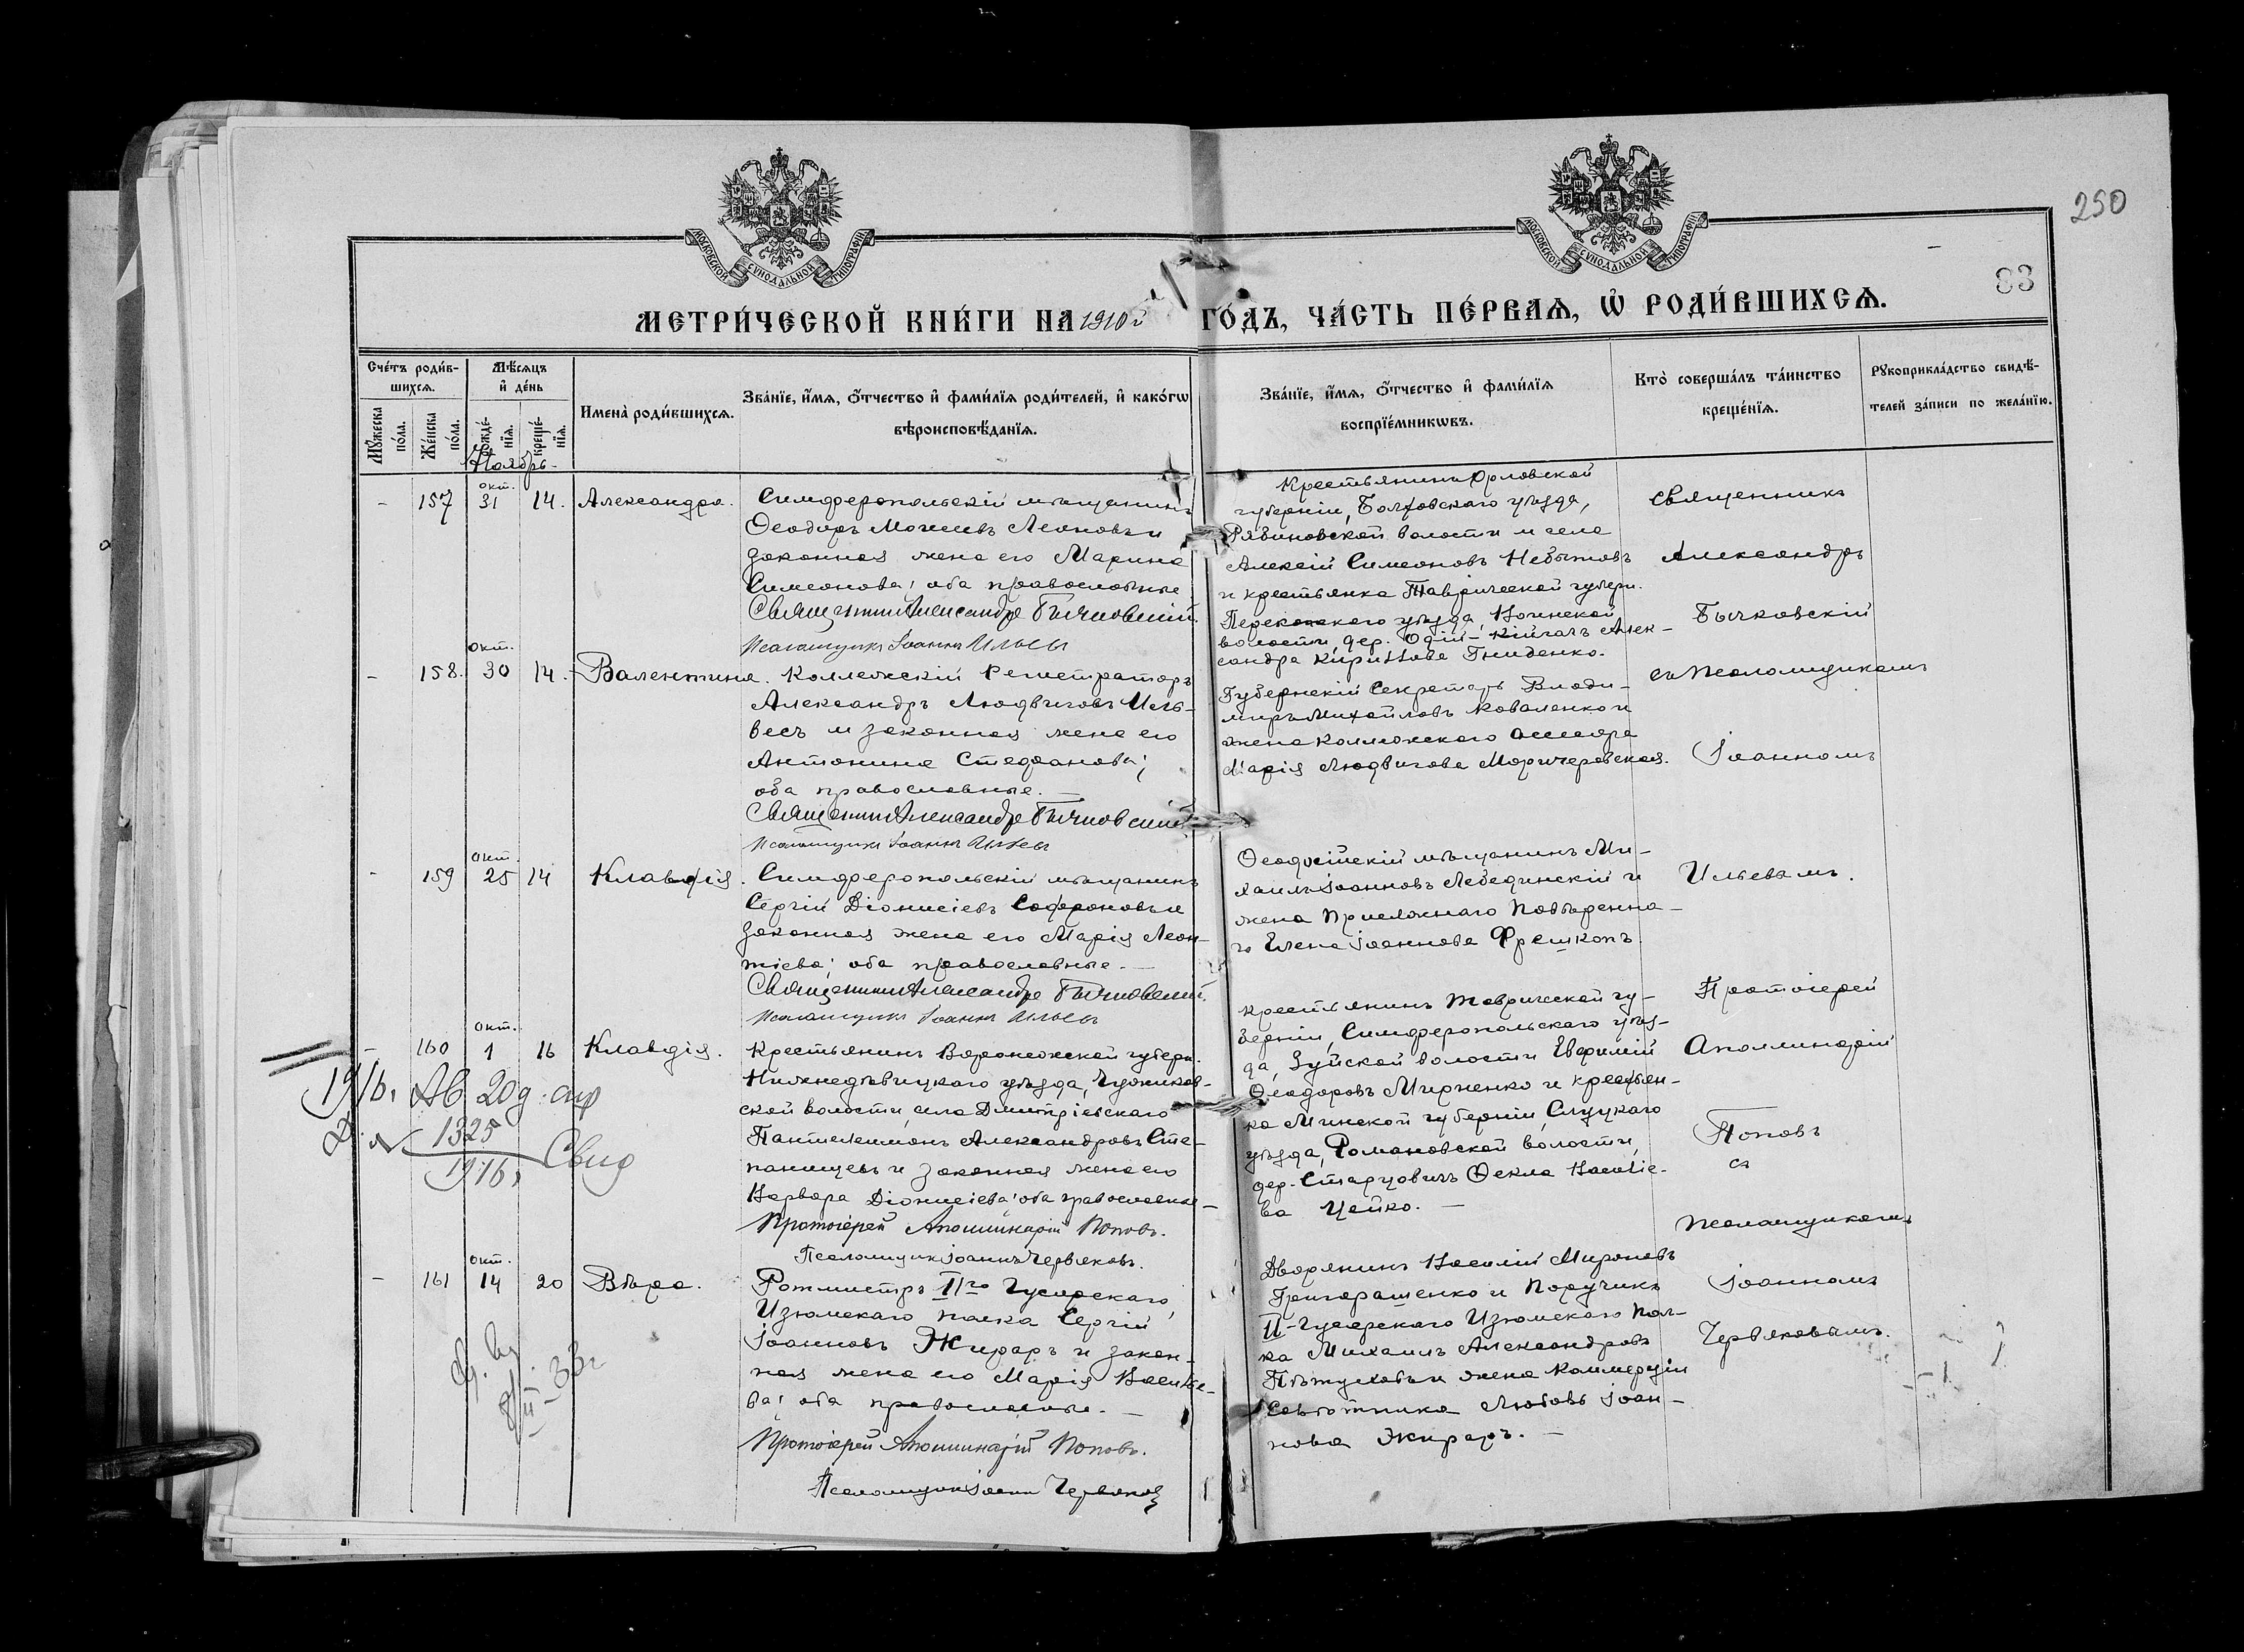 250
83
МОСКОВСКОЙ СѴНОДАЛЬНОЙ ТИПОГРАФІИ
МОСКОВСКОЙ СѴНОДАЛЬНОЙ ТИПОГРАФІИ
МЕТРИ́ЧЕСКОЙ КНИ́ГИ НА 1910й ГО́ДЪ, ЧА́СТЬ ПЕ́РВАѦ, Ѡ҆ РОДИ́ВШИХСѦ.
Сче́тъ роди́в-
шихсѧ.
Мꙋ́жеска по́ла.
Же́нска по́ла.
Мѣ́сѧцъ
и҆ де́нь
рожде́-
нїѧ.
креще́-
нїѧ.
Имена̀ роди́вшихсѧ.
Зва́нїе, и҆́мѧ, ѻ҆́тчество и҆ фами́лїѧ роди́телей, и҆ како́гѡ
вѣроисповѣ́данїѧ.
Зва́нїе, и҆́мѧ, ѻ҆́тчество и҆ фами́лїѧ
воспрїе́мникѡвъ.
Кто̀ соверша́лъ та́инство
креще́нїѧ.
Рꙋкоприкла́дство свидѣ́-
телей за́писи по жела́нїю.
Ноябрь
- 157 окт. 31 14. Александра.
Симферопольскій мѣщанинъ
Ѳеодоръ Леоновъ и
законная жена его Марина
Симеонова; оба православные
Священникъ Александръ Бычковскій.
Псаломщикъ Іоаннъ Ильевъ
Крестьянинъ Орловской
губерніи, Болховскаго уѣзда,
Рябиновской волости и села
Алексій Симеоновъ Небытовъ
и крестьянка Таврической губерн.
Перекопскаго уѣзда, Воинской
волости, дер. Алек-
сандра Кириллова Гниденко.
священникъ
Александръ
Бычковскій
съ псаломщикомъ
Іоанномъ
Ильевымъ.
- 158. окт. 30 14. Валентина.
Коллежскій Регистраторъ
Александръ Людвиговъ Иль-
весъ и законная жена его
Антонина Стефанова;
оба православные. —
Священникъ Александръ Бычковскій
Псаломщикъ Іоаннъ Ильевъ
Губернскій Секретарь Влади-
миръ Михайловъ Коваленко и
жена Коллежскаго Ассесора
Марія Людвигова
- 159 окт. 25 14 Клавдія.
Симферопольскій мѣщанинъ
Сергій Діонисіевъ Софроновъ и
законная жена его Марія Леон-
тіева; оба православные. —
Священникъ Александръ Бычковскій.
Псаломщикъ Іоаннъ Ильевъ
Ѳеодосійскій мѣщанинъ Ми-
хаилъ Іоанновъ Лебединскій и
жена Присяжнаго Повѣренна-
го Елена Іоаннова Фрешкопъ.
- 160 окт. 1 16 Клавдія.
Крестьянинъ Воронежской губерн.
Нижнедѣвицкаго уѣзда,
ской волости, села Дмитріевскаго
Пантелеимонъ Александровъ Сте-
панищевъ и законная жена его
Варвара Діонисіева; оба православные —
Протоіерей Аполлинарій Поповъ.
Псаломщикъ Іоаннъ Червяковъ.
крестьянинъ Таврической гу-
берніи, Симферопольскаго уѣз-
да, Зуйской волости Евфимій
Ѳеодоровъ Мирненко и крестьян-
ка Минской губерніи, Слуцкаго
уѣзда, Романовской волости,
дер. Старцовичъ Ѳекла Василіе-
ва Цейко. —
Протоіерей
Аполлинарій
Поповъ
съ
псаломщикомъ
Іоанномъ
Червяковымъ.
1916.
1325
1916
- 161 окт. 14 20 Вѣра.
Ротмистръ 11го Гусарскаго
Изюмскаго полка Сергій
Іоанновъ Жираръ и закон-
ная жена его Марія Василіе-
ва; оба православные. —
Протоіерей Аполлинарій Поповъ.
Псаломщикъ Іоаннъ Червяковъ
Дворянинъ Василій Мироновъ
Григорашенко и Поручикъ
11-Гусарскаго Изюмскаго Пол-
ка Михаилъ Александровъ
Пѣтуховъ и жена Коммерціи
Совѣтника Любовь Іоан-
нова Жираръ. —